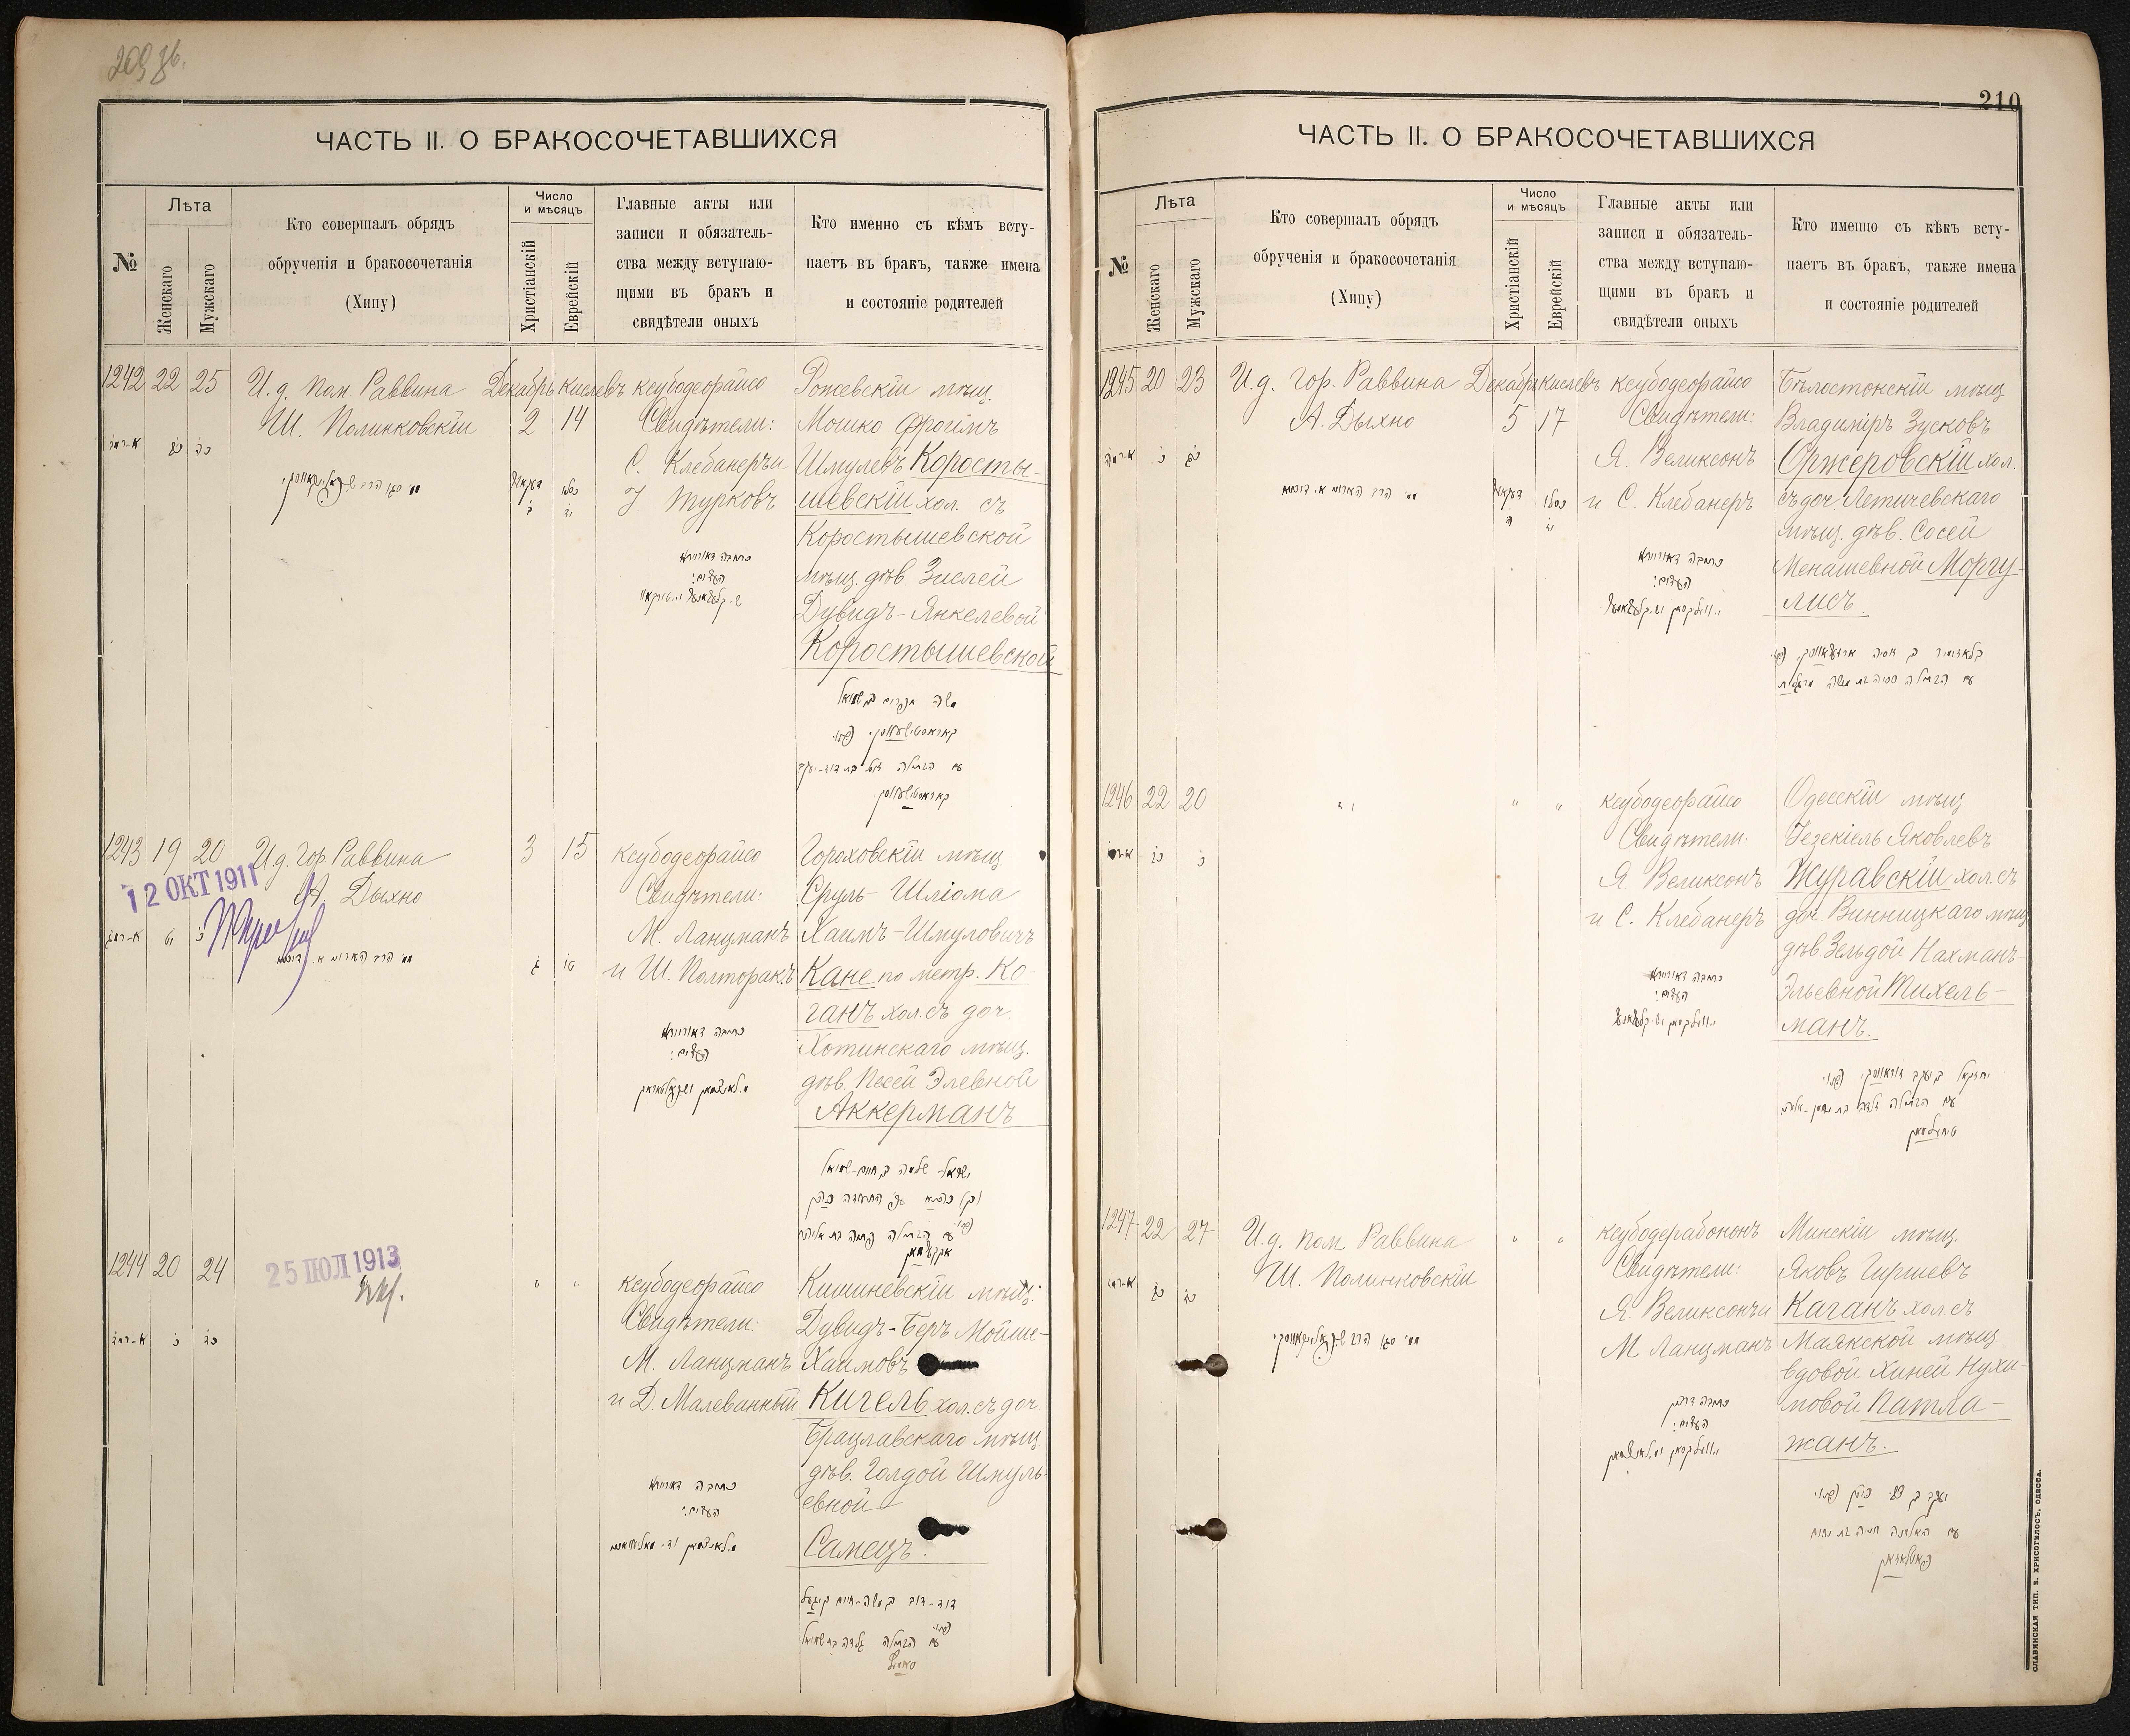 209 об.
ЧАСТЬ II. О БРАКОСОЧЕТАВШИХСЯ
№
Лѣта
Женскаго
Мужскаго
Кто совершалъ обрядъ
обрученія и бракосочетанія
(Хипу)
Число
и мѣсяцъ
Христіанскій
Еврейскій
Главные акты или
записи и обязатель-
ства между вступаю-
щими въ бракъ и
свидѣтели оныхъ
Кто именно съ кѣмъ всту-
паетъ въ бракъ, также имена
и состояніе родителей
1242 22 25
И. д. пом. Раввина
Ш. Полинковскій
Декабрь Кислевъ
2 14
ксубодеорайсо
Свидѣтели:
С. Клебанеръ и
І Турковъ
כתובה דאורייתא
העדים:
Ротевскій мѣщ.
Мошко Фроімъ
Шмулевъ Коросты-
шевскій хол. съ
Коростышевской
мѣщ. дѣв. Зислей
Дувидъ-Янкелевой
Коростышевской
משה אפרים בן שמואל
קאראסטישעווסקי הפנוי
עם הבתולה זיסל בת דוד-יעקב
קאראסטישעווסקי
1243 19 20
И. д. гор Раввина
А. Дыхно
12 ОКТ 1911
3 15
ксубодеорайсо
Свидѣтели:
М. Ланцманъ
и Ш. Полторакъ
כתובה דאורייתא
העדים:
Гороховскій мѣщ
Сруль-Шліома
Хаимъ-Шмуловичъ
Кане по метр. Ко-
ганъ хол. съ доч.
Хотинскаго мѣщ.
дѣв. Песей Элевной
Аккерманъ
ישראל-שלמה בן חיים-שמואל
1244 20 24
25 ІЮЛ 1913
" "
ксубодеорайсо
Свидѣтели:
М. Ланцманъ
и Д. Малеванный
כתובה דאורייתא
העדים:
Кишиневскій мѣщ.
Дувидъ-Беръ Мойше-
Хаимовъ
Кигель хол. съ доч.
Брацлавскаго мѣщ
дѣв. Голдой Шмуль-
евной
Самецъ.
דוד-דוב בן משה-חיים קיגעל
עם הבתולה גולדה בת שמואל
210
ЧАСТЬ II. О БРАКОСОЧЕТАВШИХСЯ
№
Лѣта
Женскаго
Мужскаго
Кто совершалъ обрядъ
обрученія и бракосочетанія
(Хипу)
Число
и мѣсяцъ
Христіанскій
Еврейскій
Главные акты или
записи и обязатель-
ства между вступаю-
щими въ бракъ и
свидѣтели оныхъ
Кто именно съ кѣкъ всту-
паетъ въ бракъ, также имена
и состояніе родителей
1245 20 23
И. д. гор. Раввина
А. Дыхно
Декабрь Кислевъ
5 17
ксубодеорайсо
Свидѣтели:
Я. Великсонъ
и С. Клебанеръ
כתובה דאורייתא
העדים:
Бѣлостокскій мѣщ
Владиміръ Зусковъ
Оржеровскій хол.
съ доч. Летичевскаго
мѣщ. дѣв. Сосей
Менашевной Моргу-
лисъ.
1246 22 20
" "
" "
ксубодеорайсо
Свидѣтели:
Я Великсонъ
и С. Клебанеръ
כתובה דאורייתא
העדים:
Одесскій мѣщ
Іезекіель Яковлевъ
Журавскій хол. съ
доч. Винницкаго мѣщ
дѣв. Зельдой Нахманъ-
Эльевной Тихель-
манъ.
1247 22 27
И. д. пом Раввина
Ш. Полинковскій
" "
ксубодерабононъ
Свидѣтели:
Я Великсонъ и
М Ланцманъ
כתובה דרבנן
העדים:
Минскій мѣщ.
Яковъ Гиршевъ
Каганъ хол съ
Маякской мѣщ
вдовой Хиней Нухи-
мовой Патла-
жанъ.
יעקב בן צבי כהן הפנוי
עם האלמנה חיה בת נחום
פאטלאזאן
СЛАВЯНСКАЯ ТИП. Е. ХРИСОГЕЛОСЪ, ОДЕССА.